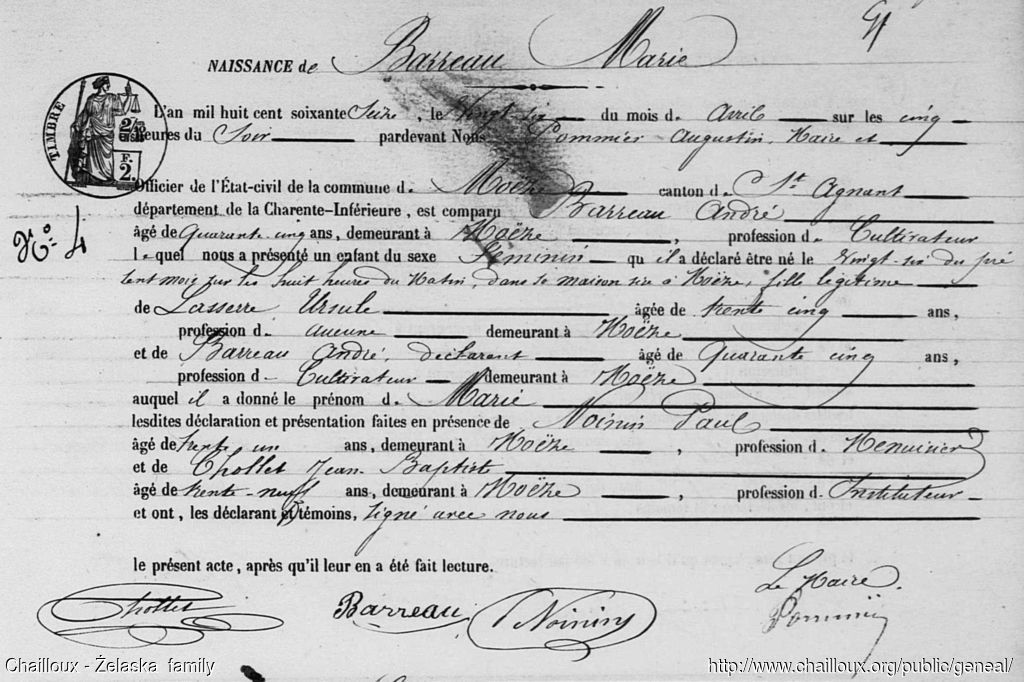 NAISSANCE de Barreau Marie
TIMBRE
F.
2.
L'an mil huit cent soixante Seize, le Vingt six du mois d. Avril sur les cinq
heures du Soir pardevant Nous Pommier Augustin, Maire et
Officier de l'État-civil de la commune d. Moëze canton d. St Agnant
département de la Charente-Inférieure, est comparu Barreau André
No. 4
âgé de Quarante cinq ans, demeurant à Moëze, profession d. Cultivateur
l. quel nous a présenté un enfant du sexe Féminin qu il a déclaré être né le Vingt-six du pré
sent mois sur les huit heures du Matin, dans sa maison sise à Moëze, fille légitime
de Lasserre Ursule âgée de trente cinq ans,
profession d. aucune demeurant à Moëze
et de Barreau André, déclarant âgé de Quarante cinq ans,
profession d. Cultivateur demeurant à Moëze
auquel il a donné le prénom d. Marie
lesdites déclaration et présentation faites en présence de Noinin Paul
âgé de trente un ans, demeurant à Moëze, profession d. Menuisier
et de Chollet Jean Baptiste
âgé de trente-neuf ans, demeurant à Moëze, profession d. Instituteur
et ont, les déclarant et témoins, signé avec nous
le présent acte, après qu'il leur en a été fait lecture.
Le Maire.
Chollet Barreau Noinin Pommier
Chailloux - Želaska family http://www.chailloux.org/public/geneal/